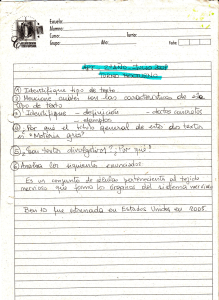 Escuela:
Alumno:
Curso: Turno:
Grupo: Año: Fecha:
TURNO
① Identifique tipo de texto
② Mencione cuáles son las características de este
tipo de texto
③ Identifique - definición - datos concretos
- ejemplos
④ Por qué el título general de estos dos textos
es "Materia gris"
⑤ ¿Son textos divulgativos? ¿Por qué?
⑥ Analice los siguientes enunciados:
Es un conjunto de células pertenecientes al tejido
nervioso que forma los órganos del sistema nervioso
fue estrenada en Estados Unidos en 2005